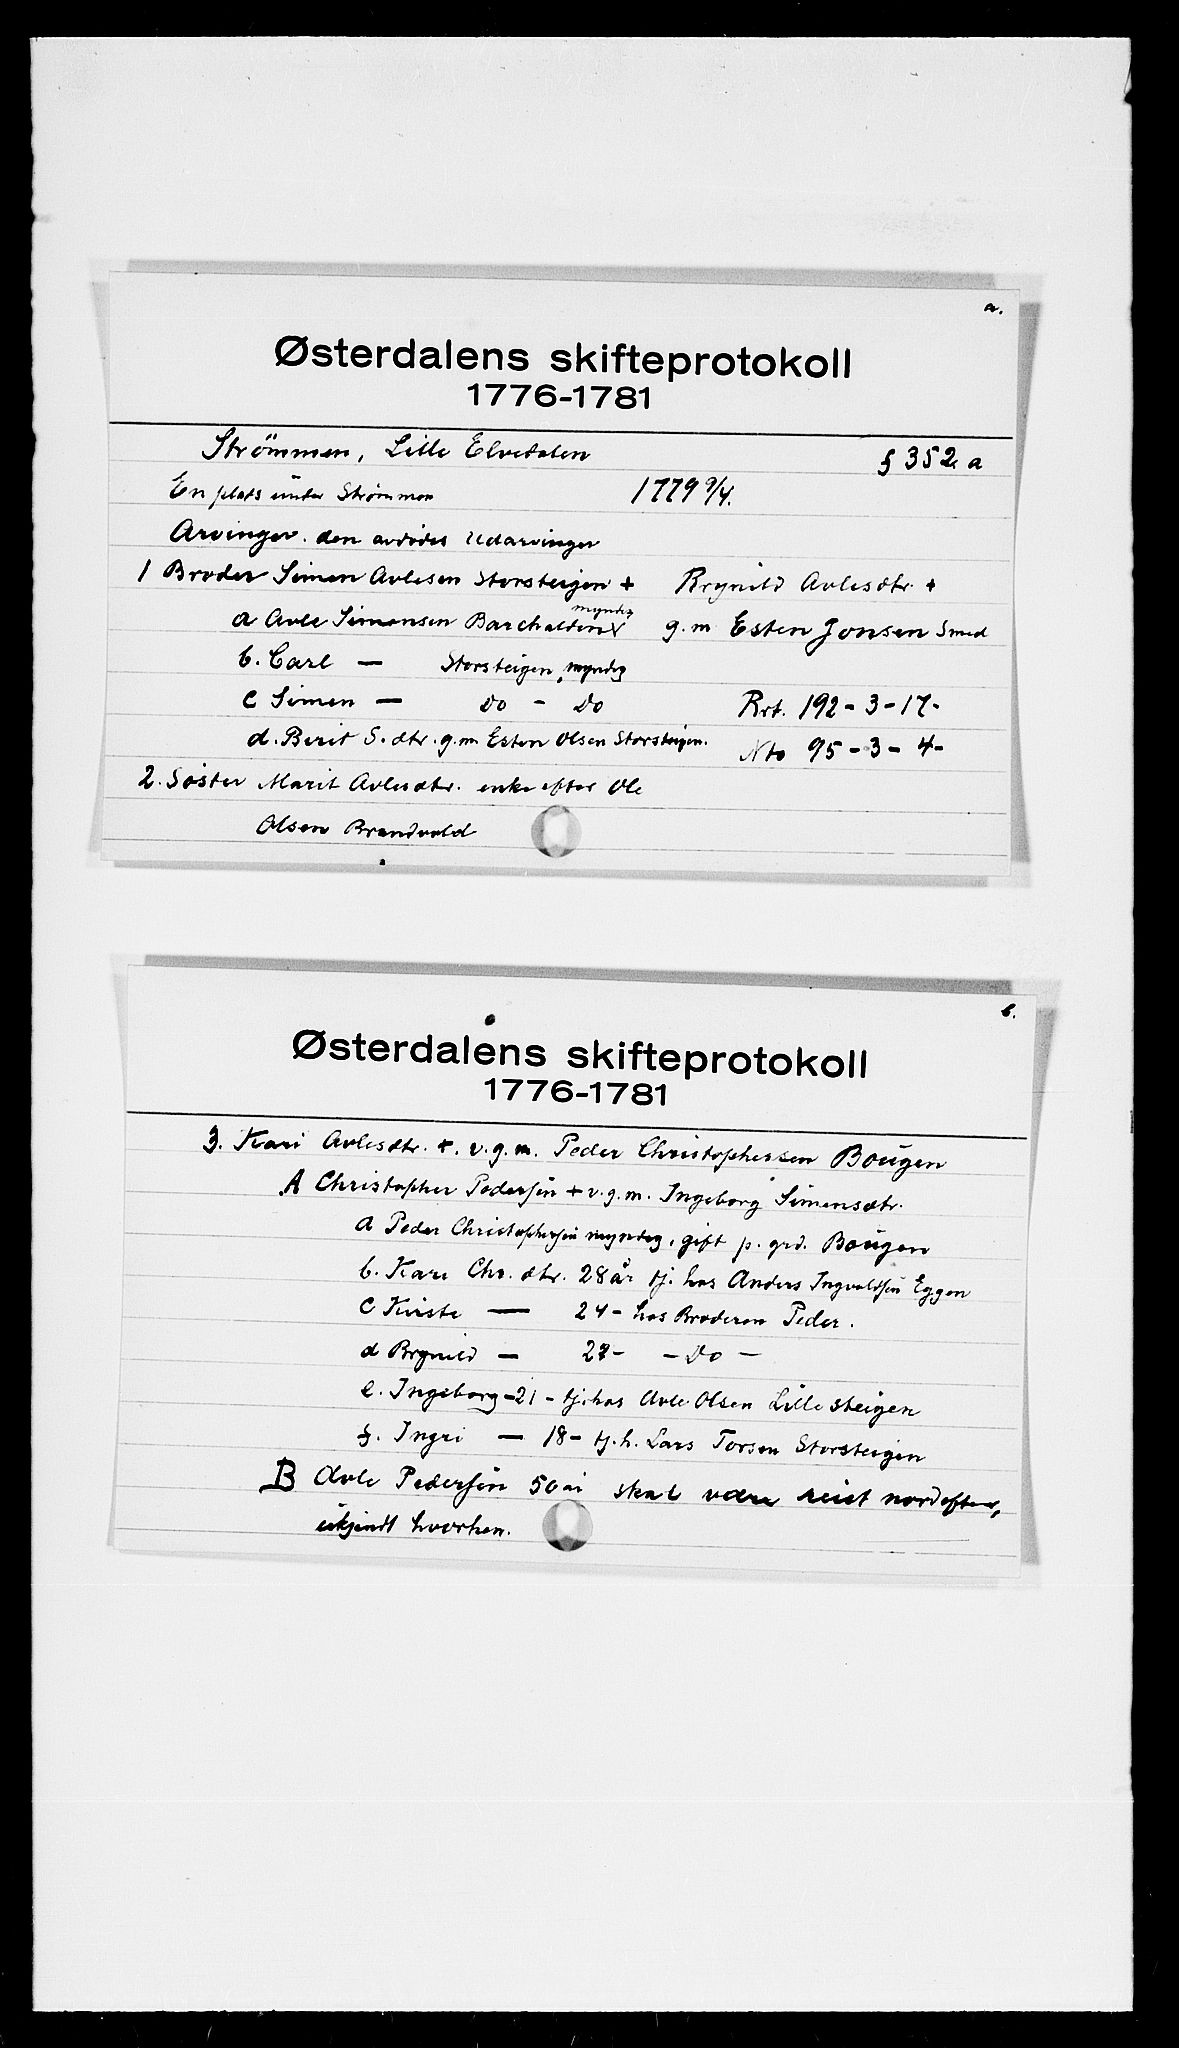 a.
Østerdalens skifteprotokoll
1776-1781
Strömmen, Lille Elvedalen § 352 a
En plats ünder Strömmen 1779 9/4.
Arvinger. den avdødes Udarvinger
1 Broder Simen Avlesen Storsteigen + Brynild Avlesdtr. +
a Avle Simensen Barchalden myndig g.m Esten Jonsen Smed
b. Carl — Storsteigen, myndig
c Simen — Do - Do Brt. 192-3-17-
d. Berit S.dtr. g.m. Esten Olsen Storsteigen. Nto 95-3-4-
2. Søster Marit Avlesdtr. enke efter Ole
Olsen Brandvold
b.
Østerdalens skifteprotokoll
1776-1781
3. Kari Avlesdtr. +. v.g.m. Peder Christophersen Boügen
A Christopher Pedersen + v.g.m. Ingeborg Simensdtr.
a Peder Christophersen myndig, gift p. grd. Boügen
b. Kari Chr.dtr. 28 år tj. hos Anders Ingvaldsen Eggen
c Kirste — 24 - hos Broderen Peder.
d Brynild — 27- - Do -
e. Ingeborg - 21 - tj. hos Avle Olsen Lille steigen
f. Ingri — 18 - tj. h. Lars Torsen Storsteigen
B Avle Pedersen 50 år skal være reist nordefter,
ükjendt hvorhen.